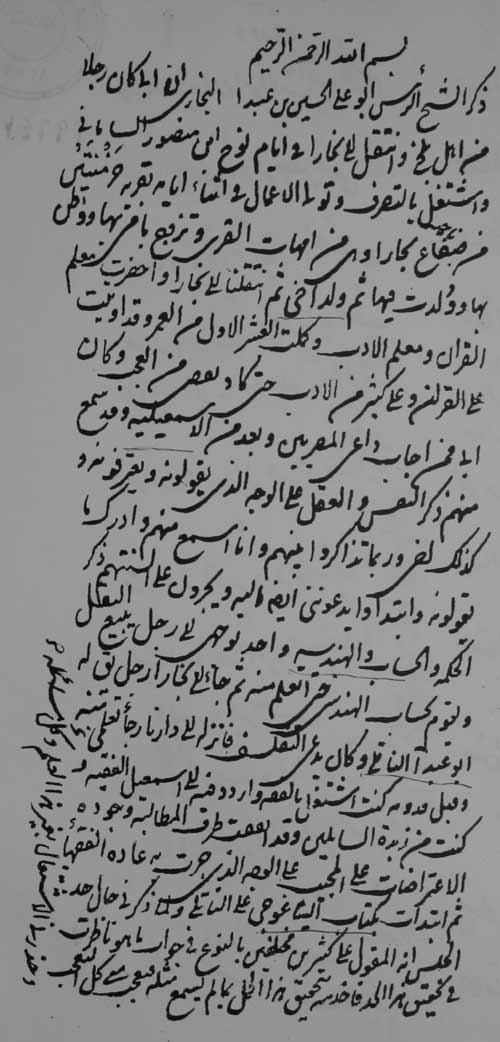 بسم الله الرحمن الرحيم
ذكر الشيخ الرئيس ابو على الحسين بن عبد الله البخارى ان ابى كان رجلا
من اهل بلخ وانتقل الى بخارا فى ايام نوح ابن منصور السامانى
واشتغل بالتصرف وتولى الاعمال فى اثناء ايامه بقرية خرميثن
من ضياع بخارا وهى من امهات القرى وتزوج بامى منها وقطن
بها وولدت فيها ثم ولد اخى ثم انتقلنا الى بخارا واحضرت معلم
القران ومعلم الادب وكملت العشر الاول من العمر وقد اتيت
على القران وعلى كثير من الادب حتى كاد يقضى من العجب وكان
ابى ممن اجاب داعى المصريين ويعد من الاسمعيلية وقد سمع
منهم ذكر النفس والعقل على الوجه الذى يقولونه ويعرفونه و
كذلك اخى وربما تذاكروا بينهم وانا اسمع منهم وادرك ما
يقولونه وابتدأوا يدعوننى ايضا اليه ويجرون على السنتهم ذكر
الحكمة والحساب والهندسة واخذ يوجهنى الى رجل يبيع البقل
ويقوم بحساب الهند حتى اتعلم منه ثم جاء الى بخارا رجل يقال له
ابو عبد الله الناتلى وكان يدعى التفلسف فانزله الى دارنا رجاء تعلمى منه
وقبل قدومه كنت اشتغل بالفقه واتردد فيه الى اسمعيل الفقيه و
كنت من زبدة السائلين وقد الفت طرق المطالبة ووجوه
الاعتراضات على المجيب على الوجه الذى جرت به عادة الفقهاء
ثم ابتدأت بكتاب ايساغوجى على الناتلى ولما ذكر لى حد
الجنس انه المقول على كثيرين مختلفين بالنوع فى جواب ما هو
فى تحقيق هذا الحد فاخذت بتحقيق هذا الحد بما لم يسمع بمثله وتعجب منى كل العجب
وحذر الاشتغال بغير هذا العلم وكان